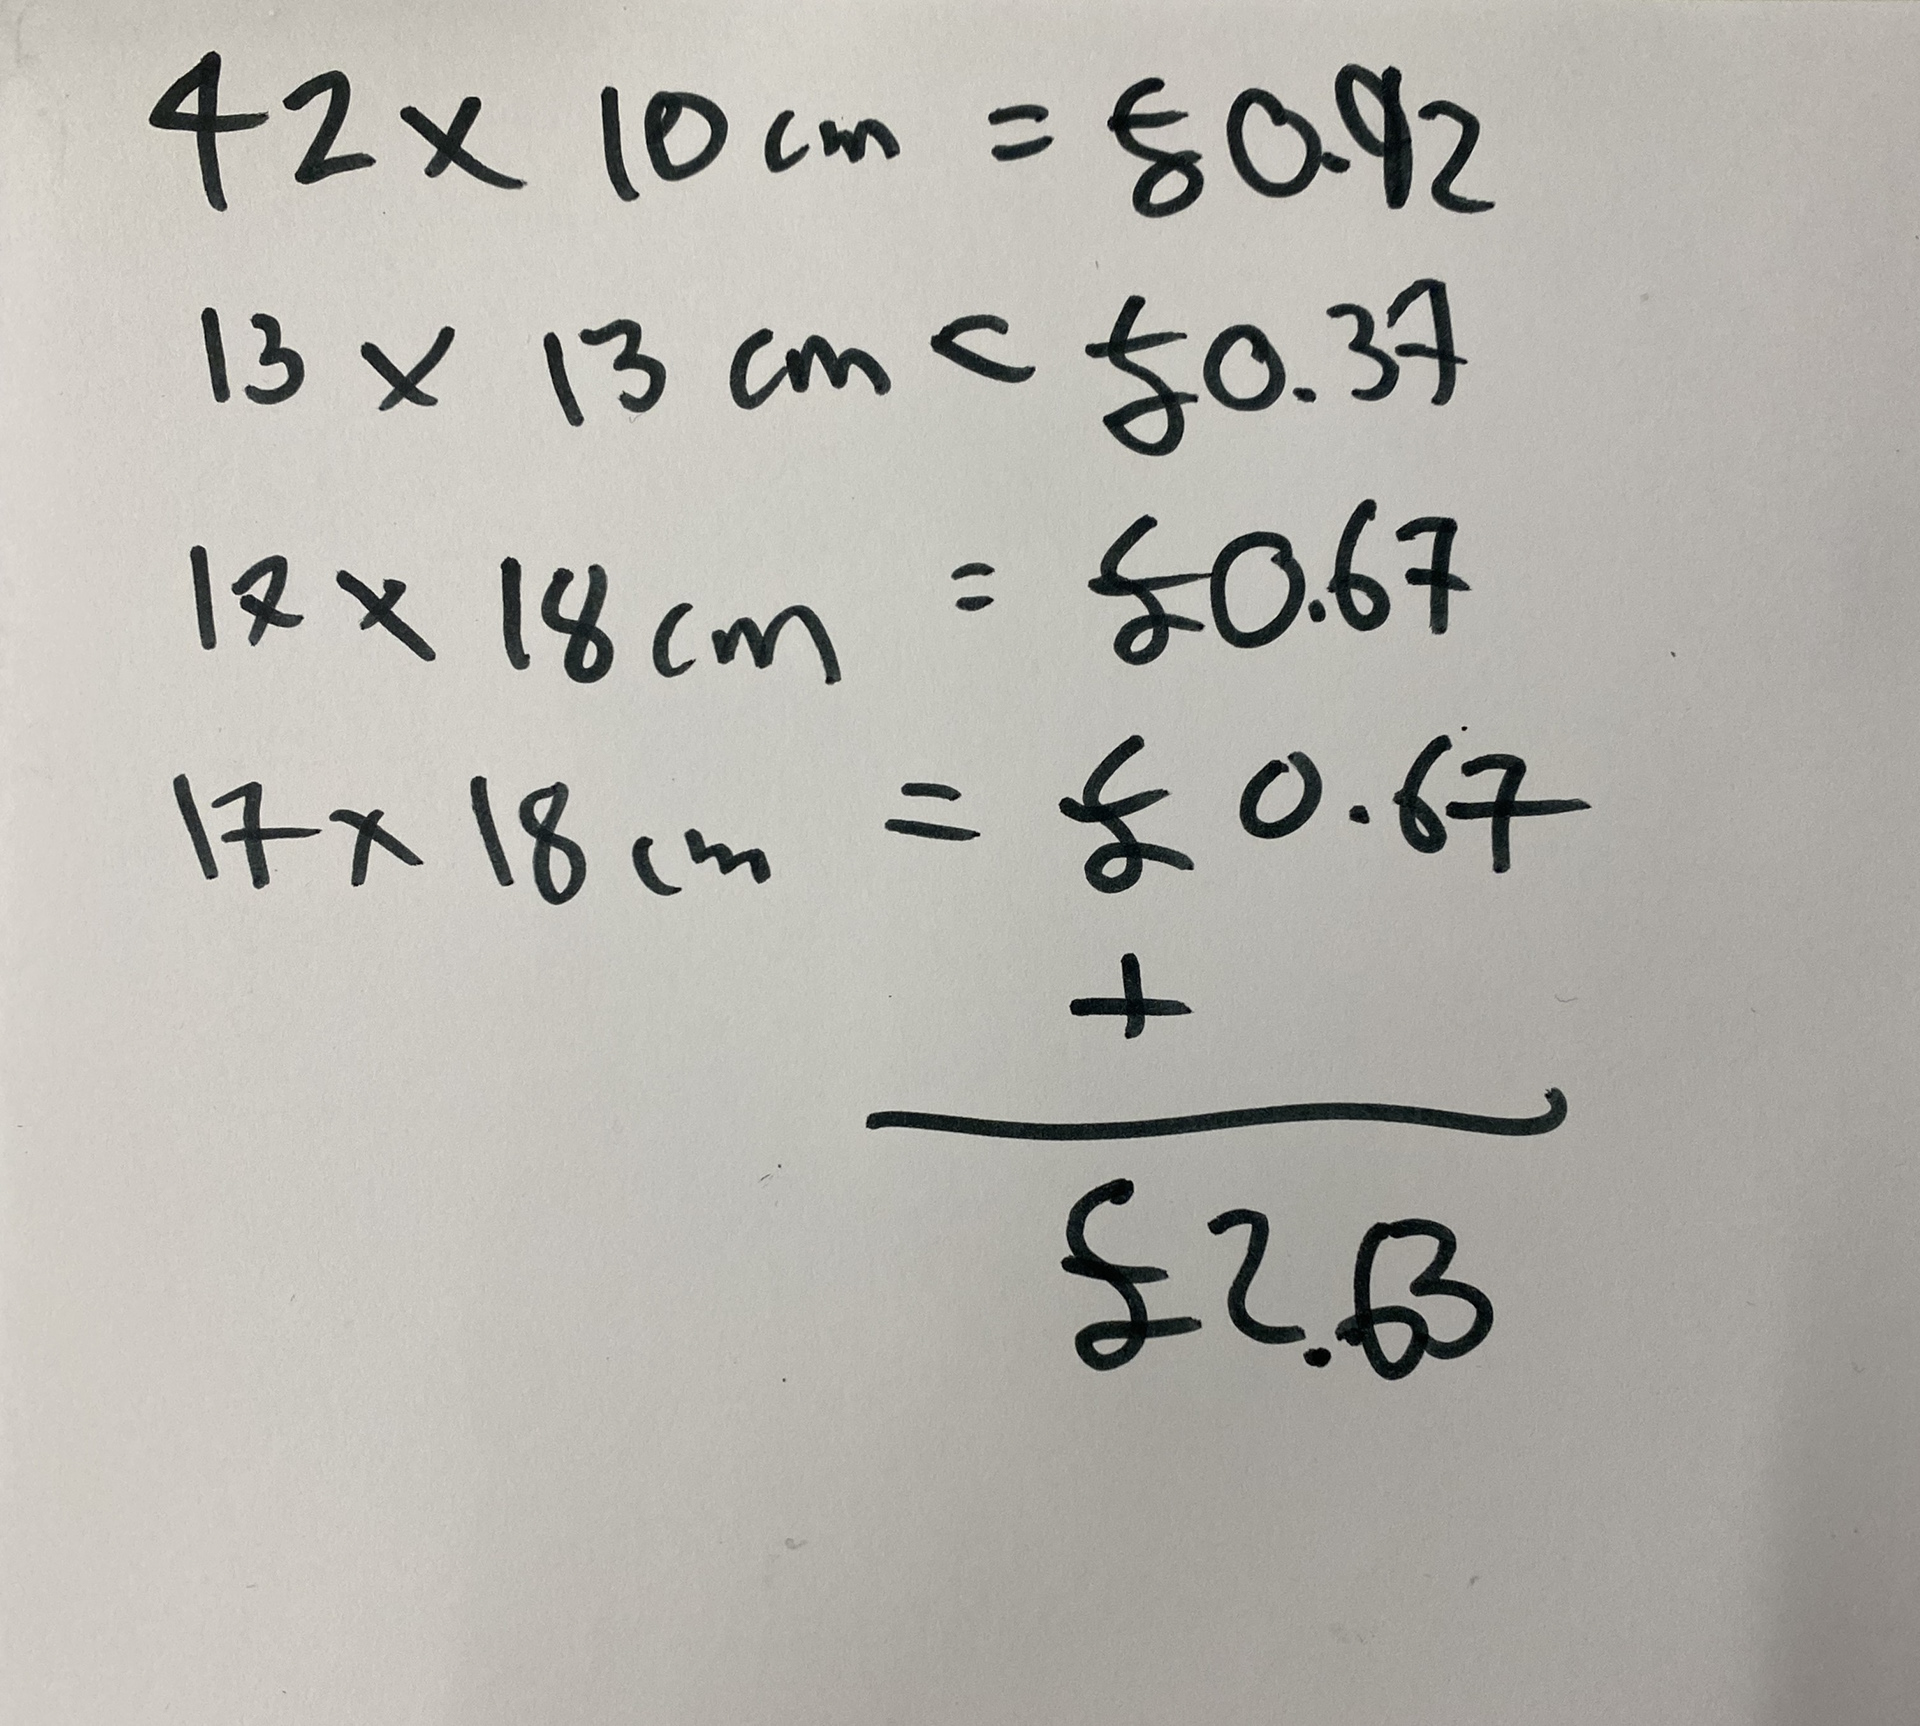 42 x 10 cm = £0.92
13 x 13 cm = £0.37
17 x 18 cm = £0.67
17 x 18 cm = £0.67
+
£2.63